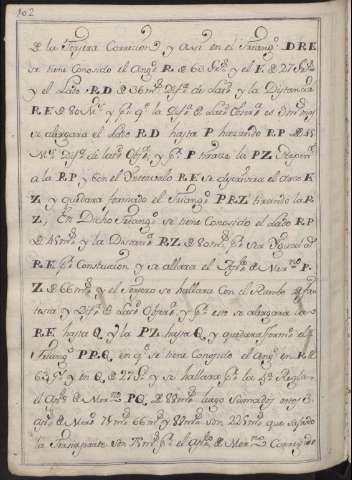 102
de la Tersera Correcion y Asi en el Triangº D.R.E
se tiene Conosido el Angº R. de 63 Gsº y el E. de 27 Gsº
y el Lado R.D de 36 mº Difª de Latº y la Distancia
R.E de 80 Mº y pº qº la Difª de Latº Obserª es mºs
se alargara el Lado R.D hasta P haziendo R.P de 45
Mº Difª de latº Obsª y pº P tirase la P.Z.
a la R.P y con el Yntervalo R.E se descrivira el arco E
Z y quedara formado el Triangº P.R.Z. tirando la R.
Z. En Dicho Triangº se tiene Conosido el Lado R.P
de 45 mº y la Distanª R.Z de 80 mº pº ser Ygual a
R.E pº Constucion y se allara el Apº de Merºº P.
Z de 66 mº y el Tersero se hallara Con el Rumbo de fan
tasia y Difª de Latº Obserª y pº eso se alargara la
R.E hasta Q y la P.Z hasta Q y quedara formº el
Triangº P.R.Q. en qº se tiene Conosido el Angº en R de
63 Gº y en Q de 27 Gº y se hallara pº la 4ª Regla
el Apº de Merºº P.Q. de 88 mº luego Sumados estos 3
apºs de Merº 71 mº 66 mº y 88 mº son 225 mº que sacado
la Tersia parte son 75 mº pº el apº de Merºº Corregido